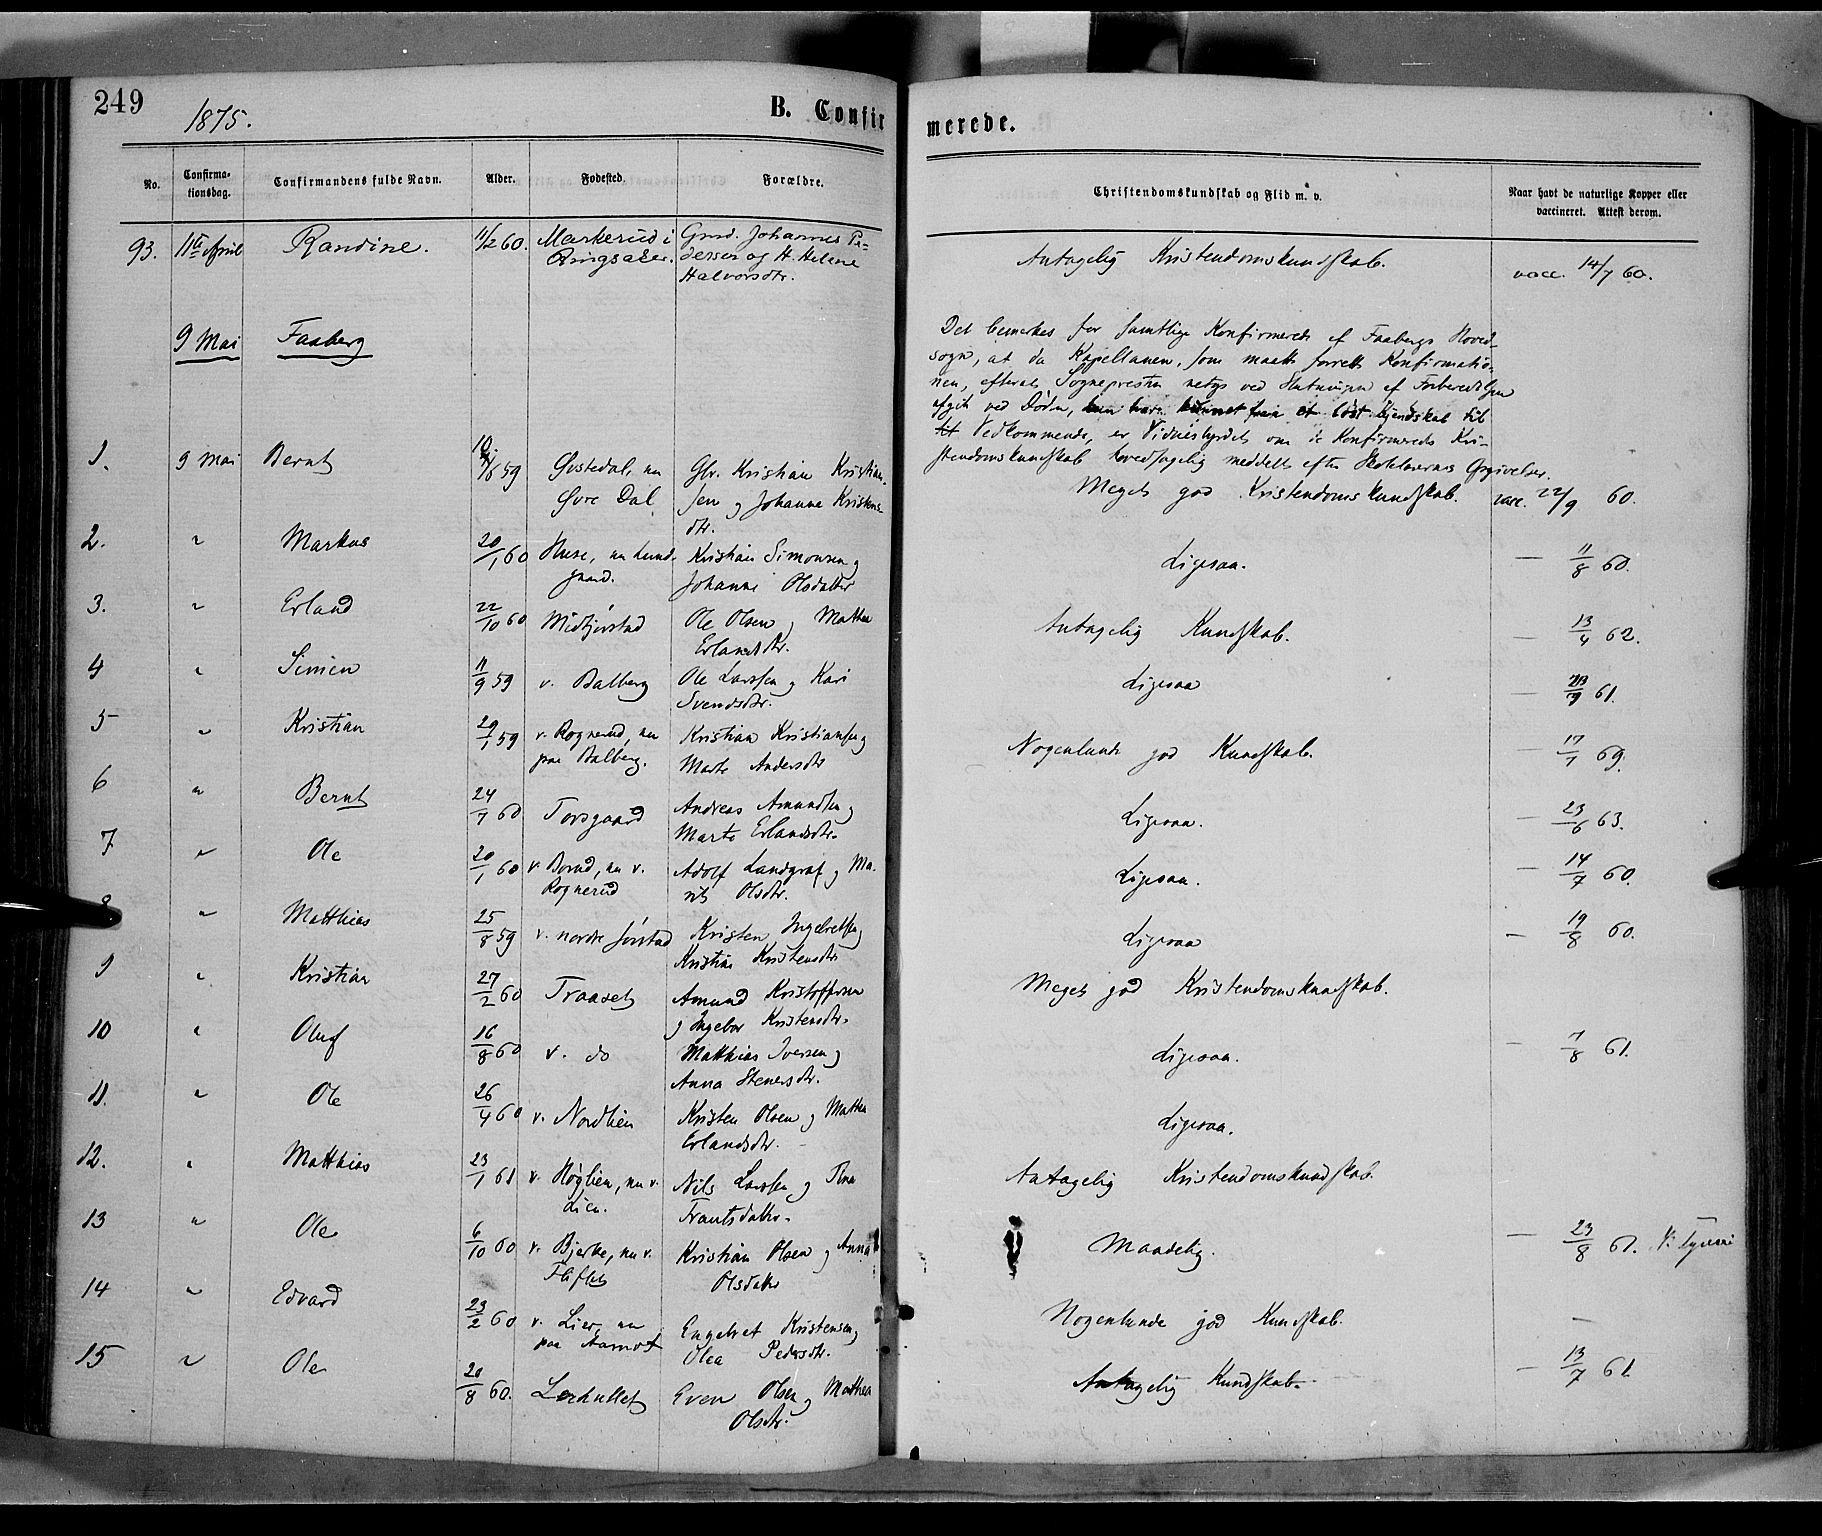 249
1875.
B. Confirmerede.
No.
Confirma-
tionsdag.
Confirmandens fulde Navn.
Alder.
Fødested.
Forældre.
Christendomskundskab og Flid m. v.
Naar havt de naturlige Kopper eller
vaccineret. Attest derom.
93. 11te April Randine. 11/2 60. Markerud i Gmd. Johannes Pe- Antagelig Kristendomskundskab. vacc. 14/7 60.
Ringsaker. dersen og H. Helene
Halvorsdtr.
9 Mai Faaberg
Det bemerkes for samtlige Konfirmerede af Faabergs Hoved-
sogn, at da Kapellanen, som maatte forrette Konfirmatio-
nen, efterat Sognepresten netop ved Slutningen af Forberedelsen
afgik ved Døden, kun have kunnet faa et løst Kjendskab til
Vedkommende, er Vidnesbyrdet om de Konfirmeredes Kri-
stendomskundskab hovedsagelig meddelt efter Skolelærernes Opgivelser.
1. 9 Mai Bernt 59 Øvstedal, nu Gbr. Kristian Kristian- Meget god Kristendomskundskab. vacc. 22/9 60.
Øvre Dal. sen og Johanne Kristens-
dtr.
2. " Markus 20/1 60 Huse, nu Kristian Simonsen og Ligesaa. — 11/8 60.
Johanne Olsdatter
3. " Erland 22/10 60 Midtjørstad Ole Olsen og Mathea Antagelig Kundskab. — 13/4 62.
Erlandsdtr.
4 " Simen 11/9 59 v. Balberg Ole Larssen og Kari Ligesaa — 61.
Svendsdtr.
5 " Kristian 29/1 59 v. Rognerud, nu Kristian Kristiansen og Nogenlunde god Kundskab. 17/7 69.
paa Balberg. Marte Andersdtr
6 " Bernt 24/7 60 Torsgaard Andreas Amundsen og Ligesaa. — 23/6 63.
Marte Erlandsdtr.
7 " Ole 20/1 60 v. Borud, nu v. Adolf Landgraf og Ma- Ligesaa. — 14/7 60.
Rognerud rit Olsdtr.
8 " Matthias 25/8 59 v. nordre Jørstad Kristen Ingebretsen og Ligesaa — 19/8 60.
Kristine Kristensdtr
9 " Kristian 27/2 60 Traaset Amund Kristoffersen Meget god Kristendomskundskab.
og Ingebor Kristensdtr.
10 " Oluf 16/8 60 v. do Matthias Iversen og Ligesaa. — 7/8 61.
Anna Stenersdtr.
11. " Ole 26/4 60 v. Nordlien Kristen Olsen og Mathea Ligesaa.
Erlandsdtr.
12. " Matthias 23/1 61 v. Høglien, nu v. Nils Larssen og Antagelig Kristendomskundskab.
Lien. Frantsdatter.
13 " Ole 6/10 60 v. Bjerke, nu v. Kristian Olsen og Anna Maadelig. — 23/8 61.
Fliflet Olsdatter
14 " Edvard 23/2 60 v. Lier, nu Engebret Kristensen og Nogenlunde god Kundskab. —
paa Aamot Olea Pedersdtr.
15 " Ole 20/8 60. Lerhullet Even Olsen og Mathea Antagelig Kundskab. — 13/7 61
Olsdtr.